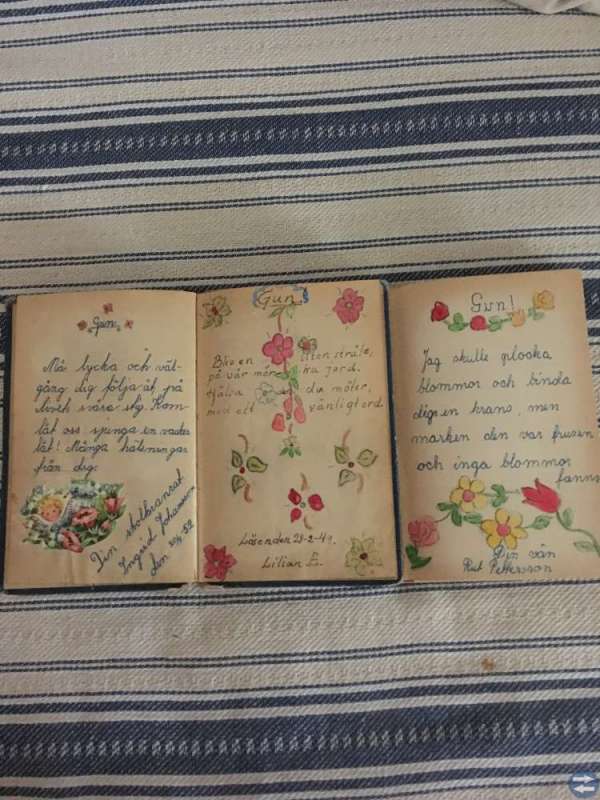 Gun.
Må lycka och väl-
gång dig följa åt på
livets svåra stig. Kom
låt oss sjunga en vacker
låt! Många hälsningar
från dig.
Din skolkamrat
Ingrid Johansson
den 30/4 52
Gun
Bliv en liten stråle,
på vår mörka jord.
Hjälva du möter,
med ett vänligt ord.
Läsenden 28-2-49.
Lilian E.
Gun!
Jag skulle plocka
blommor och binda
dig en krans, men
marken den var frusen
och inga blommor
fanns
Din vän
Rut Pettersson